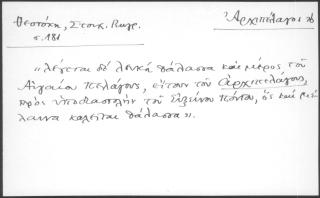 Θεοτόκη, Στοιχ. Γεωγρ. Ἀρχιπέλαγος
σ. 181
«λέγεται δὲ λευκὴ θάλασσα καὶ μέρος τοῦ
Αἰγαίου πελάγους, εἴτουν τοῦ ἀρχιπελάγους,
πρὸς ὑποδιαστολὴν τοῦ Εὐξείνου Πόντου, ὃς καὶ μέ-
λαινα καλεῖται θάλασσα».